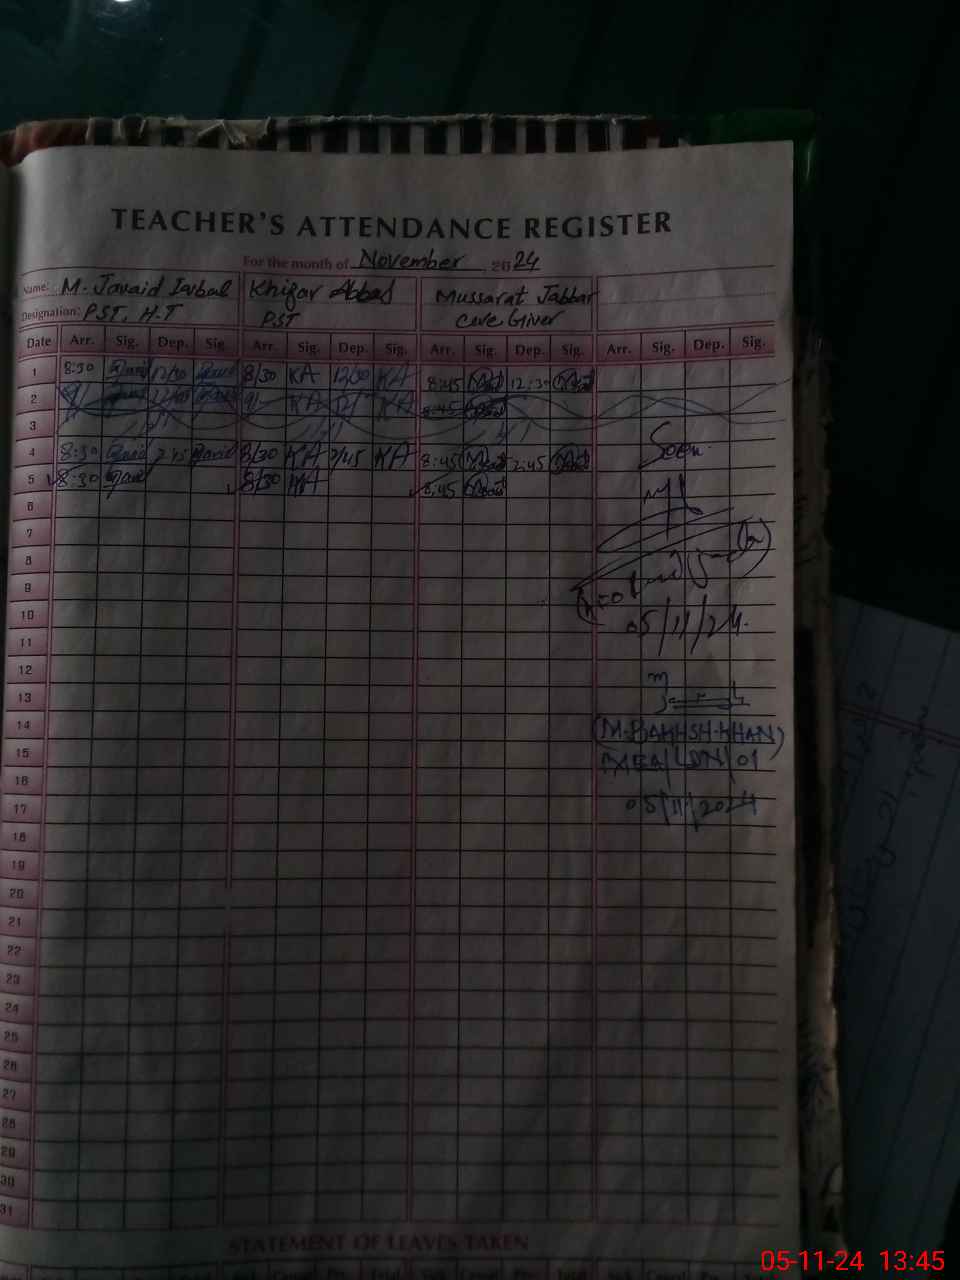 TEACHER'S ATTENDANCE REGISTER
For the month of November, 2024
Name: M. Javaid Iqbal Khizar Abbas Mussarat Jabbar
Designation: PST, H.T PST Care Giver
Date Arr. Sig. Dep. Sig. Arr. Sig. Dep. Sig. Arr. Sig. Dep. Sig. Arr. Sig. Dep. Sig.
1 8:30 Javaid 12/30 Javaid 8/30 KA 12/30 KA 8:45 12:30
2 9/ 9/ KA 12/ KA 8:45
3
4 8:30 Javaid 2:45 Javaid 8/30 KA 2/45 KA 8:45 2:45
Seen
5 8:30 Javaid 8/30 KA 8:45
6
7
8
9
10
05/11/24
11
12
13
14
(M.BAKHSH KHAN)
15
MEA/LDN/01
16
17
05/11/2024
18
19
20
21
22
23
24
25
26
27
28
29
30
31
STATEMENT OF LEAVES TAKEN
05-11-24 13:45